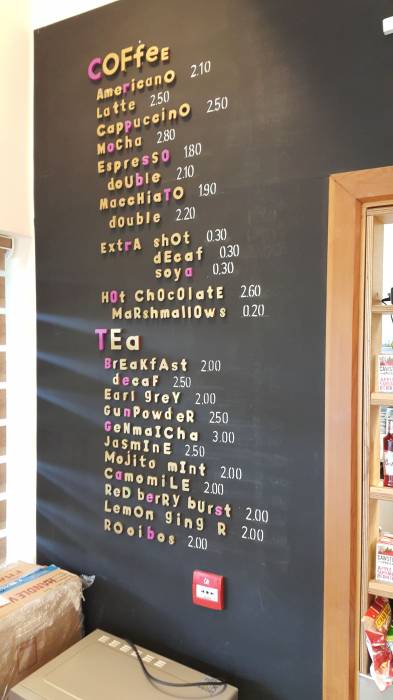 COffeE
AmericanO 2.10
Latte 2.50
CappucciNO 2.50
MoCha 2.80
EspressO 1.80
doUble 2.10
MaccHiaTO 1.90
dOuble 2.20
ExtrA shOt 0.30
dEcaf 0.30
soya 0.30
HOt ChOcOlatE 2.60
MaRshmallOws 0.20
TEa
BrEaKfAst 2.00
decaF 2.50
Earl greY 2.00
GunPowdeR 250
GeNmaICha 3.00
JasMInE 2.50
MoJito mInt 2.00
CamomiLE 2.00
ReD beRRy burst 2.00
LemOn ging R 2.00
ROoibos 2.00